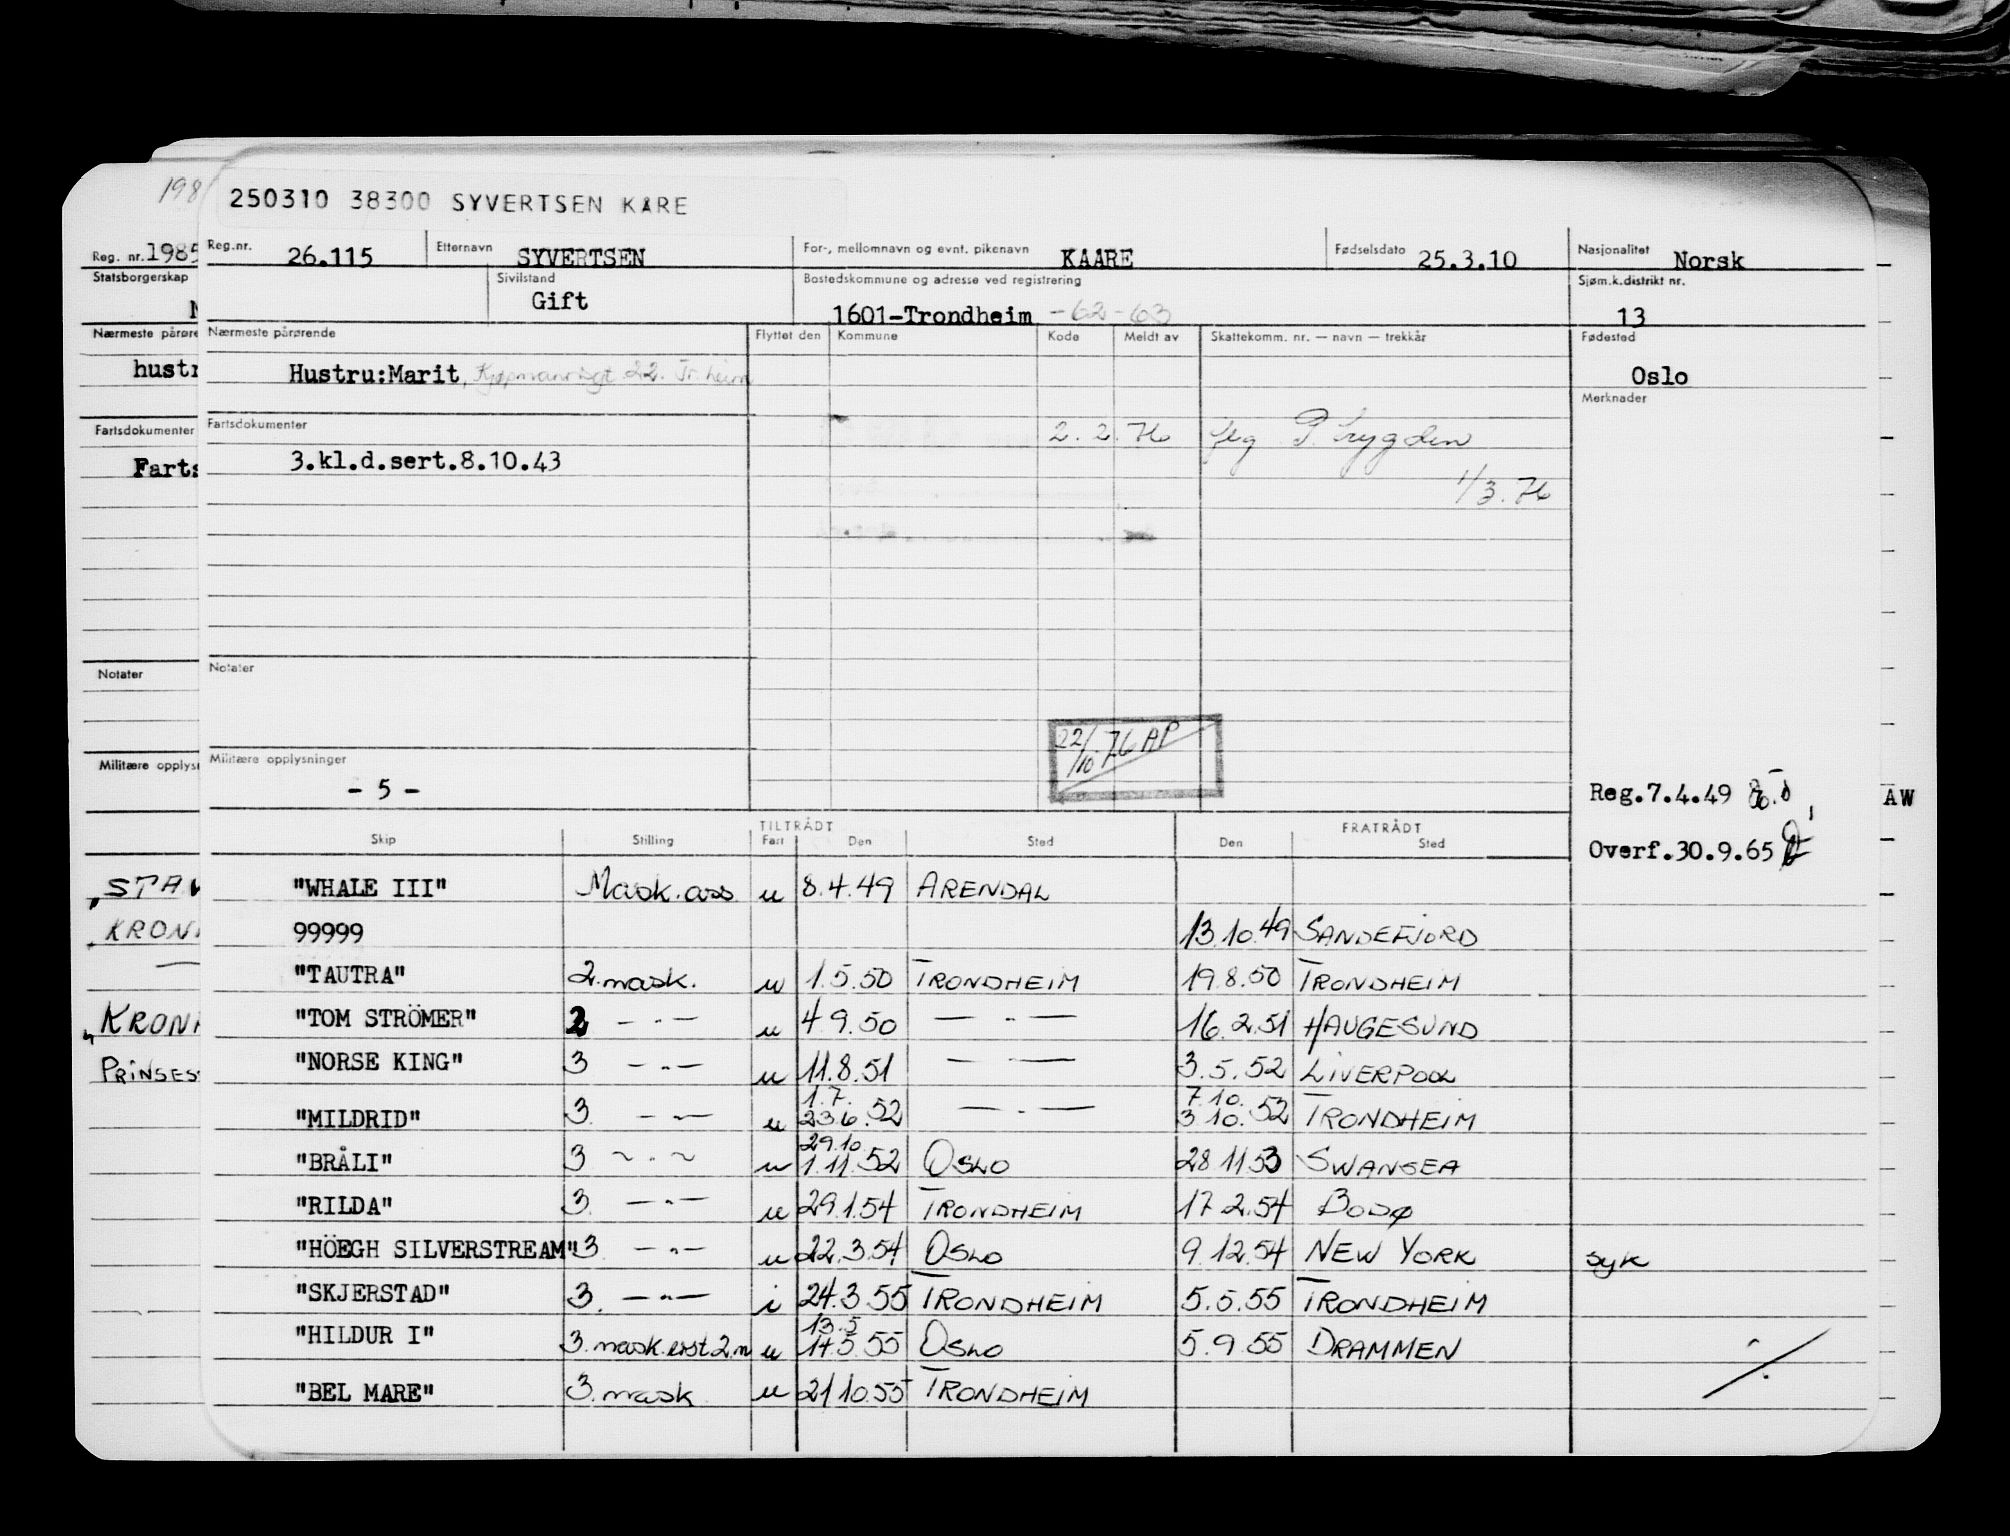 198
250310 38300 SYVERTSEN KARE
Reg. nr. 1985
Reg.nr. 26.115 Etternavn SYVERTSEN For-, mellomnavn og evnt. pikenavn KAARE Fødselsdato 25.3.10 Nasjonalitet Norsk
Statsborgerskap
Sivilstand Gift Bostedskommune og adresse ved registrering 1601-Trondheim -62-63 Sjøm.k.distrikt nr. 13
Nærmeste pårøre
Nærmeste pårørende Flyttet den Kommune Kode Meldt av Skattekomm. nr. — navn — trekkår Fødested
hustr
Hustru:Marit, 22. Tr.heim Oslo
Merknader
Fartsdokumenter
Fartsdokumenter
2. 2. 76
Farts
3.kl.d.sert.8.10.43
1/3. 76
Notater
Notater
22/10 76 AP
Militære opplys
Militære opplysninger
- 5 -
Reg.7.4.49
AW
Overf.30.9.65
TILTRÅDT FRATRÅDT
Skip Stilling Fart Den Sted Den Sted
"STAV
"WHALE III" Mask.ass u 8.4.49 ARENDAL
"KRON
99999 13.10.49 SANDEFJORD
"TAUTRA" 2.mask. u 1.5.50 TRONDHEIM 19.8.50 TRONDHEIM
"KRON
"TOM STRÖMER" 2 — " — u 4.9.50 — " — 16.2.51 HAUGESUND
PRINSES
"NORSE KING" 3 — " — u 11.8.51 — " — 3.5.52 LIVERPOOL
"MILDRID" 3. — " — u 1.7. 23.6.52 — " — 7.10. 3.10.52 TRONDHEIM
"BRÅLI" 3 ~ " ~ u 29.10 1.11.52 OSLO 28.11.53 SWANSEA
"RILDA" 3. — " — u 29.1.54 TRONDHEIM 17.2.54 BODØ
"HÖEGH SILVERSTREAM" 3. — " — u 22.3.54 OSLO 9.12.54 NEW YORK syk
"SKJERSTAD" 3. — " — i 24.3.55 TRONDHEIM 5.5.55 TRONDHEIM
"HILDUR I" 3.mask.erst.2.m u 13.5 14.5.55 OSLO 5.9.55 DRAMMEN
"BEL MARE" 3.mask u 21.10.55 TRONDHEIM